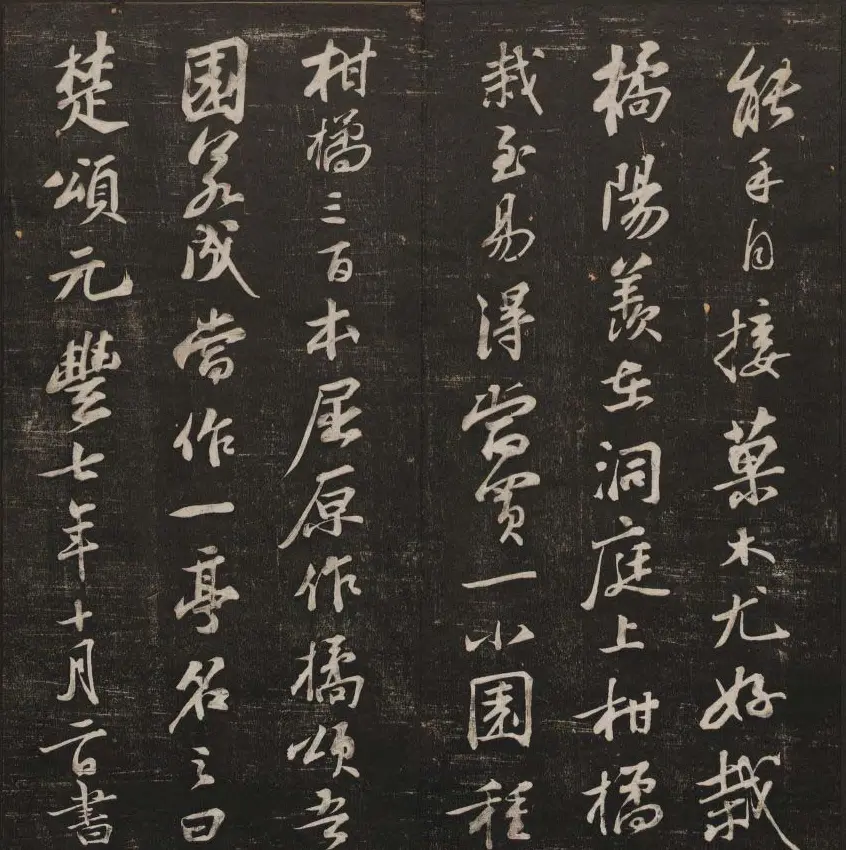 能手自接菓木尤好栽
橘陽羨在洞庭上柑橘
栽至易得當買一小園種
柑橘三百本屈原作橘頌吾
園若成當作一亭名之曰
楚頌元豐七年十月二日書